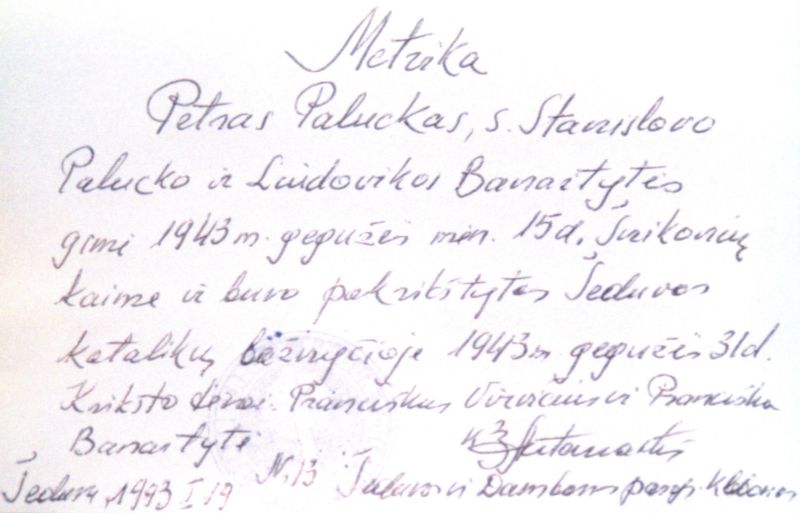 Metrika
Petras Paluckas, s. Stanislovo
Palucko ir Liudovikos Banaitytės
gimė 1943 m. gegužės mėn. 15 d.
kaime ir buvo pakrikštytas Šeduvos
katalikų bažnyčioje 1943 m. gegužės 31 d.
Krikšto tėvai: Pranciškus ir Pranciška
Banaitytė
Šeduva, 1993 I 19 Nr. 13 Šeduvos ir parap. Klebonas